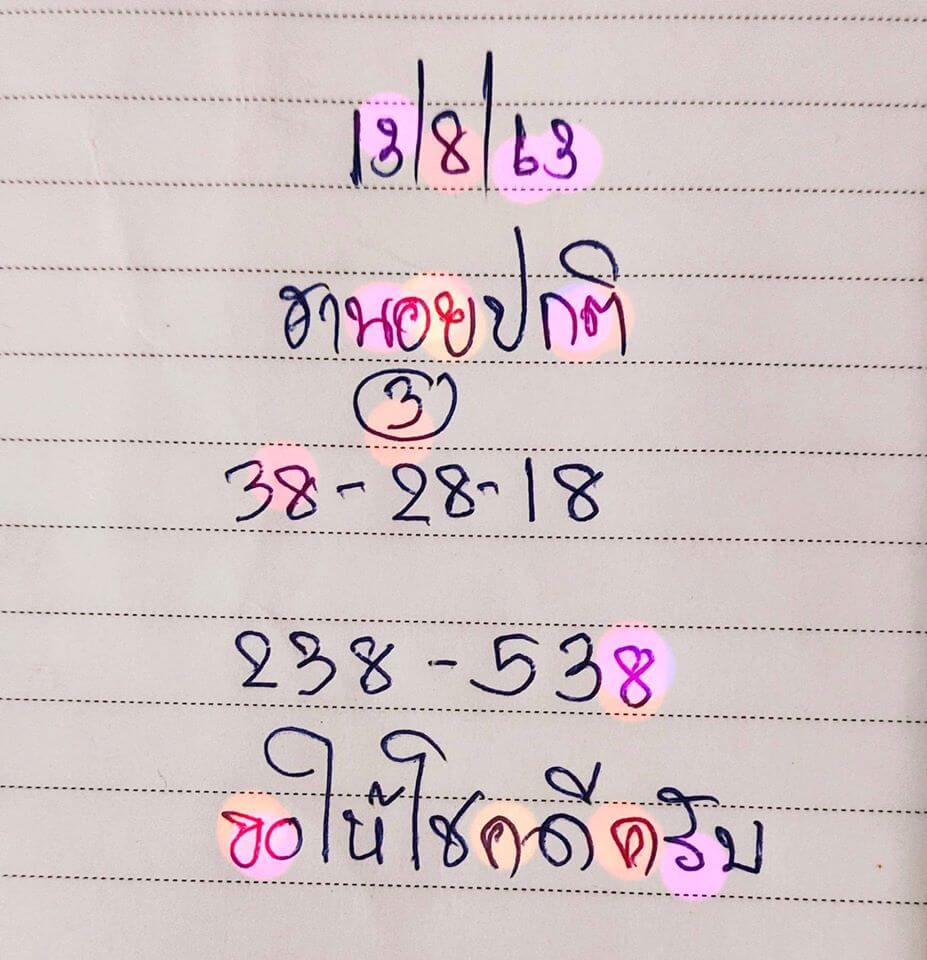 13/8/63
ฮานอยปกติ
3
38-28-18
238-538
ขอให้โชคดีครับ